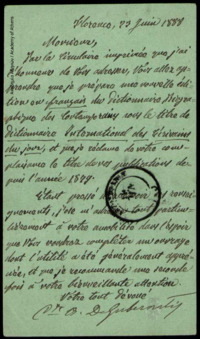 Florence, 22 Juin 1888
Monsieur,
Par la circulaire imprimée que j'ai
l'honneur de vous adresser, Vous allez ap-
prendre que je prépare une nouvelle édi-
tion en français du Dictionnaire Biogra-
phique des Contemporains sous le titre de
Dictionnaire International des Écrivains
du jour, et je réclame de votre com-
plaisance le titre de vos publications de-
puis l'année 1879.
Étant pressé
quements, je m'adresse tout particu-
lièrement à votre amabilité dans l'espoir
que Vous voudrez compléter un ouvrage
dont l'utilité a été généralement appré-
ciée, et me recommande une seconde
fois à votre bienveillante attention.
Votre tout dévoué
Cte A. De Gubernatis
Academy of Athens